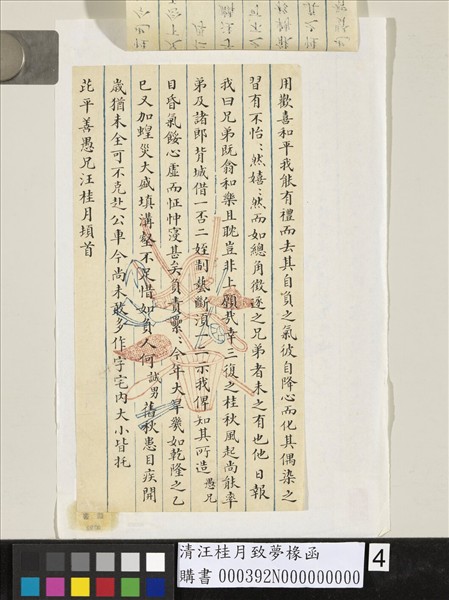 用歡喜和平我能有禮而去其自負之氣彼自降心而化其偶染之
習有不怡〻然嬉〻然而如總角徵逐之兄弟者未之有也他日報
我曰兄弟既翕和樂且耽豈非上願哉幸三復之桂秋風起尚能率
弟及諸郎背城借一否二姪制藝斷須一一示我俾知其所造愚兄
目昏氣餒心虛而怔忡寢甚矣負責纍〻今年大旱幾如乾隆之乙
巳又加蝗災大盛填溝壑不足惜如負人何誠男舊秋患目疾開
歲猶未全可不克赴公車今尚未敢多作字宅內大小皆托
芘平善愚兄汪桂月頓首
清汪桂月致夢椽函
購書 000392N000000000
4